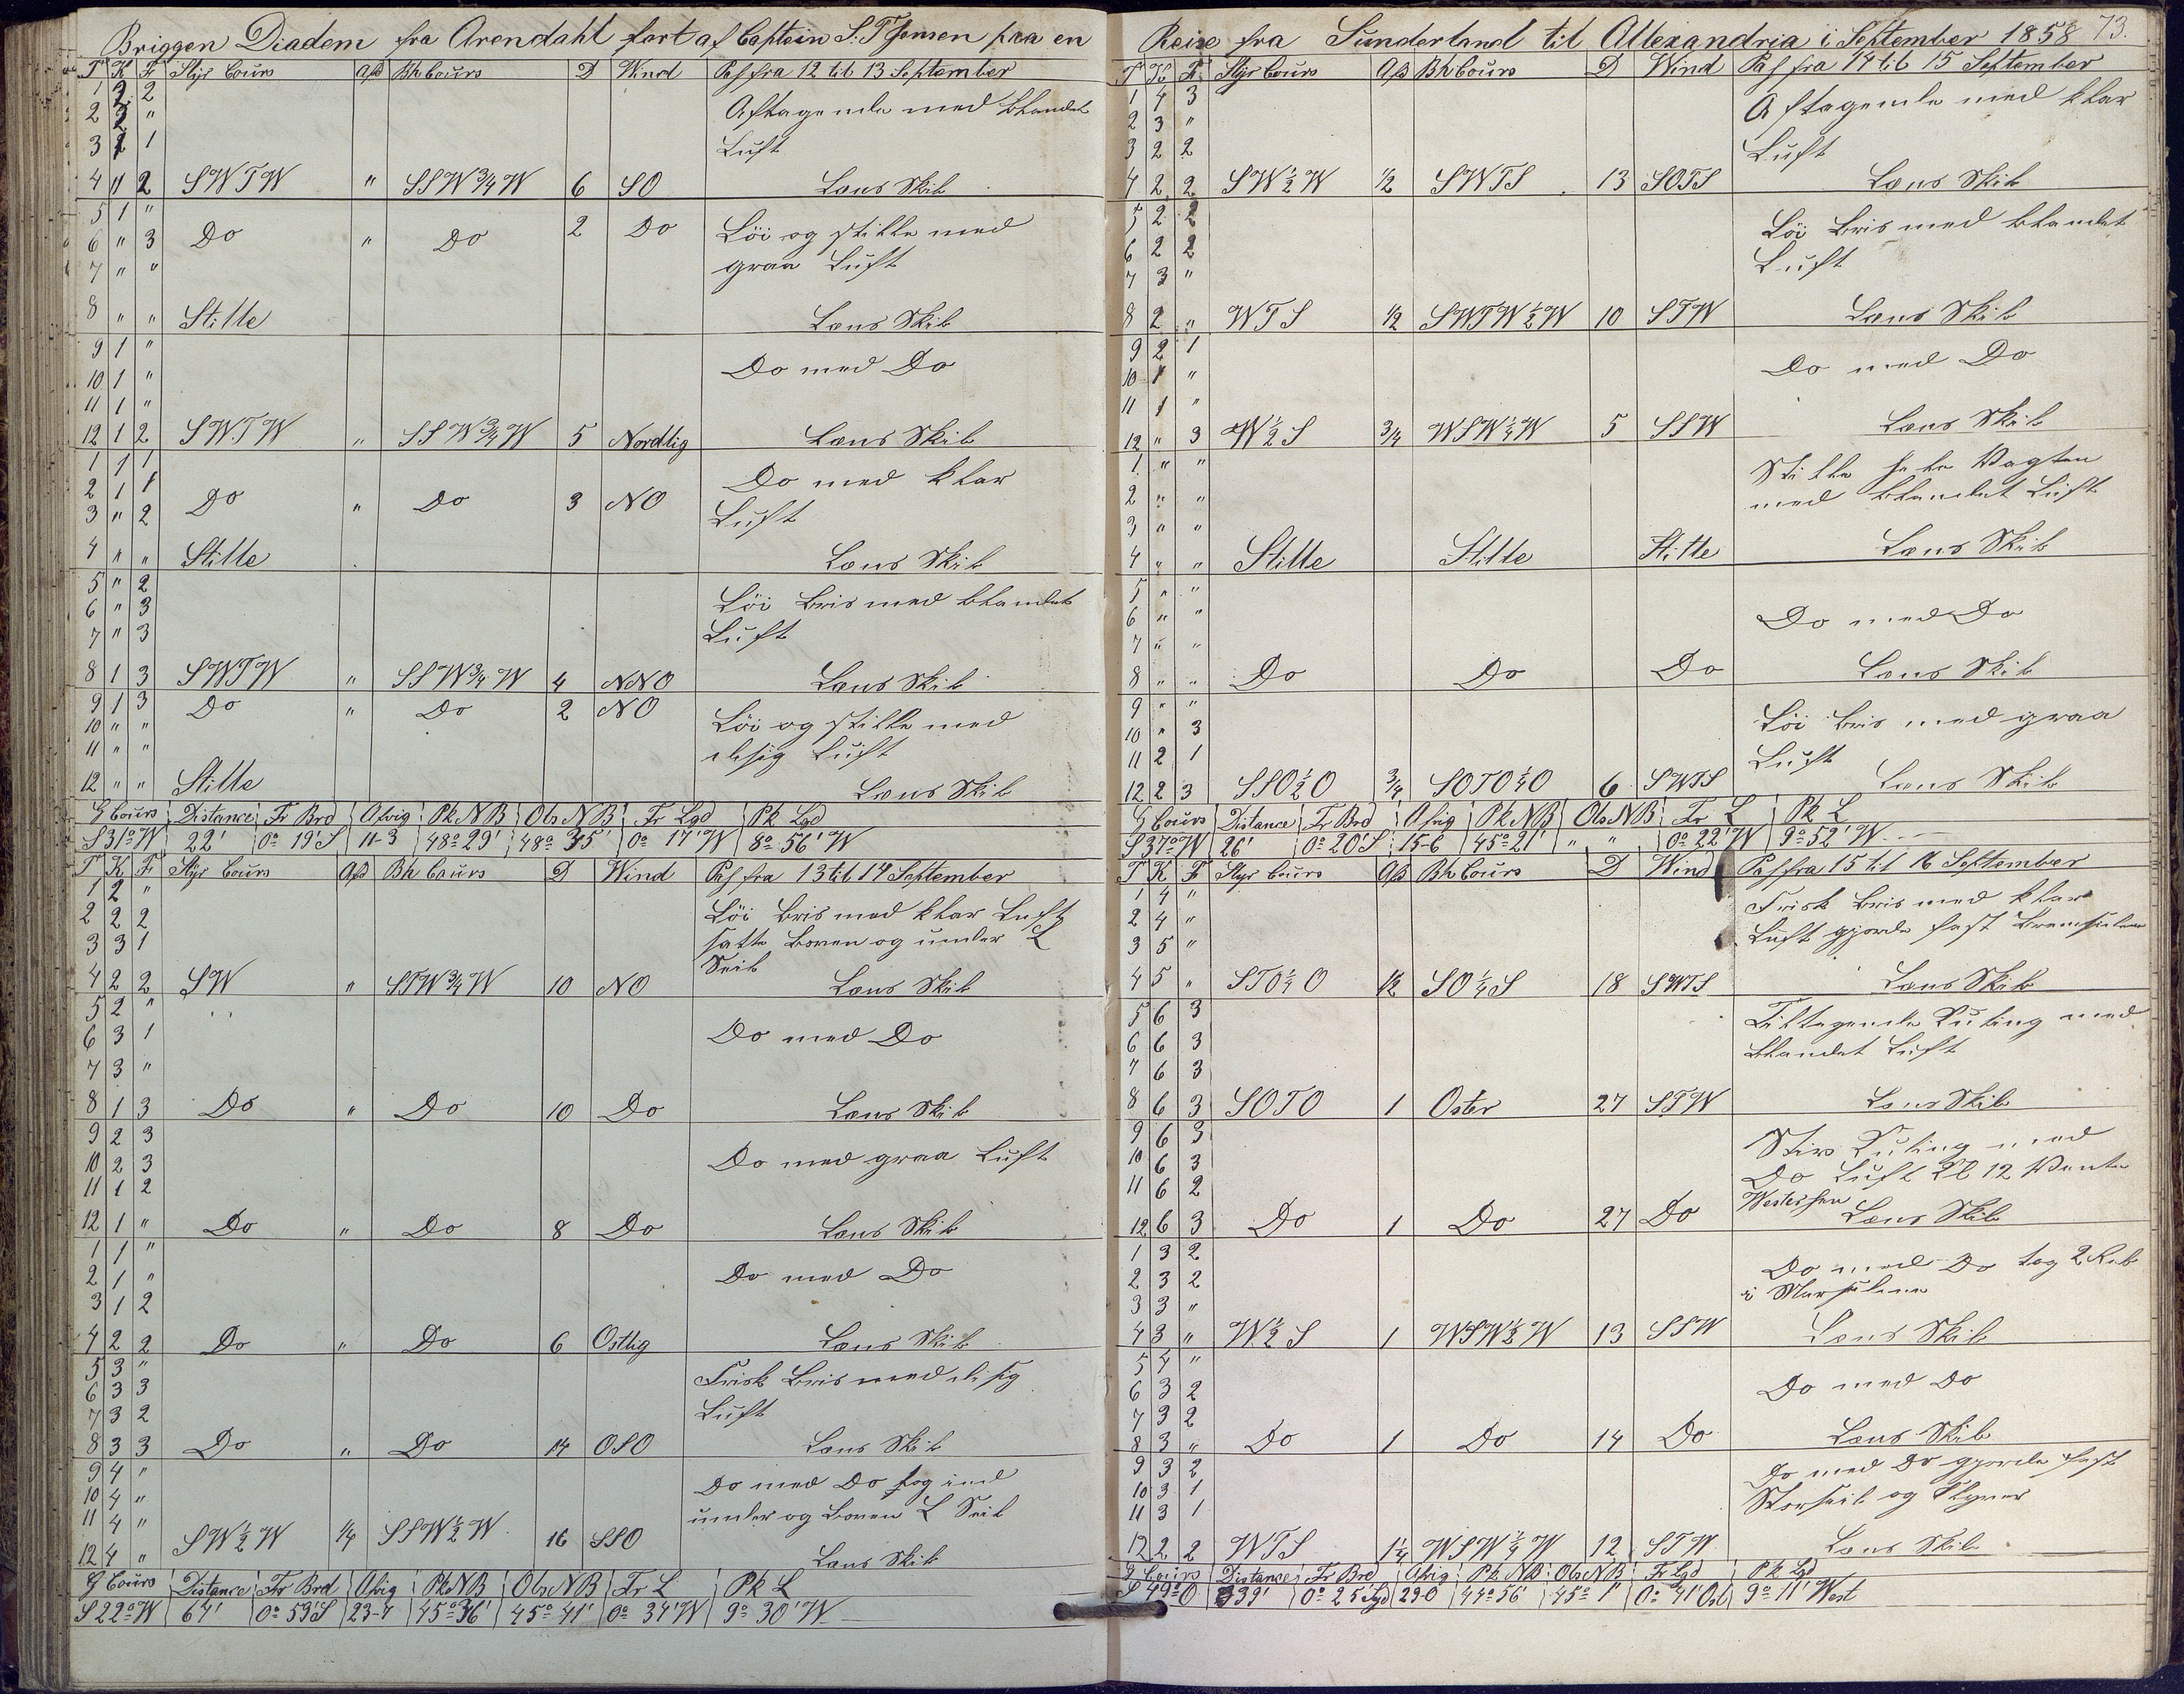 Briggen Diadem fra Arendahl ført af Captein S. T. Jensen paa en
T K Fr Styr Cours Afd Bh Cours D Wind Pas fra 12 til 13 September
1 2 2 Aftagende med blandet
2 3 "
3 2 1 Luft
4 " 2 SWTW " SSW 3/4 W 6 SO Læns Skib
5 1 "
6 " 3 Do " Do 2 Do Löi og stille med
7 " " graa Luft
8 " " Stille Læns Skib
9 1 "
10 1 " Do med Do
11 1 "
12 1 2 SWTW " SSW 3/4 W 5 Nordlig Læns Skib
1 1 1 Do med klar
2 1 1 Do " Do 3 NO
3 " 2 Luft
4 " " Stille Læns Skib
5 " 2
6 " 3 Löi Bris med blandet
7 " 3 Luft
8 1 3 SWTW " SSW 3/4 W 4 NNO Læns Skib
9 1 3 Do " Do 2 NO
10 " " Löi og stille med
11 " " disig Luft
12 " " Stille Læns Skib
G Cours Distance Fr Brd Afvig Pk NB Obs NB Fr Lgd Pk Lgd
S 31° W 22' 0° 19' S 11-3 48° 29' 48° 35' 0° 17' W 8° 56' W
T K Fr Styr Cours Afd Bh Cours D Wind Pas fra 13 til 14 September
1 2 "
2 2 2 Löi Bris med klar Luft
3 3 1 satte Boven og under L
Seil
4 2 2 SW " STW 3/4 W 10 NO Læns Skib
5 2 "
6 3 1 Do med Do
7 3 "
8 1 3 Do " Do 10 Do Læns Skib
9 2 3
10 2 3 Do med graa Luft
11 1 2
12 1 " Do " Do 8 Do Læns Skib
1 1 "
2 1 " Do med Do
3 1 2
4 2 2 Do " Do 6 Ostlig Læns Skib
5 3 " Frisk Bris med disig
6 3 3
7 3 2 Luft
8 3 3 Do " Do 14 OSO Læns Skib
9 4 " Do med Do tog ind
10 4 "
11 4 " under og Boven L Seil
12 4 " SW 1/2 W 1/4 SSW 1/2 W 16 SSO Læns Skib
G Cours Distance Fr Brd Afvig Pk NB Obs NB Fr L Pk L
S 22° W 64' 0° 59' S 23-4 45° 36' 45° 41' 0° 34' W 9° 30' W
Reise fra Sunderland til Allexandria i September 1858 73.
T K F Styr Cours Afd Bh Cours D Wind Pas fra 14 til 15 September
1 4 3 Aftagende med klar
2 3 "
3 2 2 Luft
4 2 2 SW 1/2 W 1/2 SWTS 13 SOTS Læns Skib
5 2 2 Löi Bris med blandet
6 2 2
7 3 " Luft
8 2 " WTS 1/2 SWTW 1/2 W 10 STW Læns Skib
9 2 1
10 1 " Do med Do
11 1 "
12 " 3 W 1/2 S 3/4 WSW 1/4 W 5 SSW Læns Skib
1 " " Stille hele Vagten
2 " " med blandet Luft
3 " "
4 " " Stille Stille Stille Læns Skib
5 " "
6 " " Do med Do
7 " "
8 " " Do Do Do Læns Skib
9 " " Löi Bris med graa
10 " 3
11 2 1 Luft
12 2 3 SSO 1/2 O 3/4 SOTO 1/4 O 6 SWTS Læns Skib
G Cours Distance Fr Brd Afvig Pk NB Obs NB Fr L Pk L
S 37° W 26' 0° 20' S 15-6 45° 21' " " 0° 22' W 9° 52' W
T K F Styr Cours Afd Bh Cours D Wind Pas fra 15 til 16 September
1 4 " Frisk Bris med klar
2 4 "
3 5 " Luft gjorde fast Bramseilene
4 5 " STO 1/4 O 1/2 SO 1/4 S 18 SWTS Læns Skib
5 6 3 Tiltagende Kuling med
6 6 3 blandet Luft
7 6 3
8 6 3 SOTO 1 Oster 27 STW Læns Skib
9 6 3 Stiv Kuling med
10 6 3 Do Luft Kl 12 Vente
11 6 2 Westerhen
12 6 3 Do 1 Do 27 Do Læns Skib
1 3 2 Do med Do tog 2 Reb
2 3 2 i Mersseilene
3 3 "
4 3 " W 1/2 S 1 WSW 1/2 W 13 SSW Læns Skib
5 4 "
6 3 2 Do med Do
7 3 2
8 3 " Do 1 Do 14 Do Læns Skib
9 3 2 Do med Do gjorde fast
10 3 1 Storseil og Klyver
11 3 1
12 2 2 WTS 1 1/4 WSW 1/4 W 12 STW Læns Skib
G Cours Distance Fr Brd Afvig Pk NB Obs NB Fr Lgd Pk Lgd
S 49° O 39' 0° 25 Syd 29-0 44° 56' 45° 1' 0° 41' Ost 9° 11' West